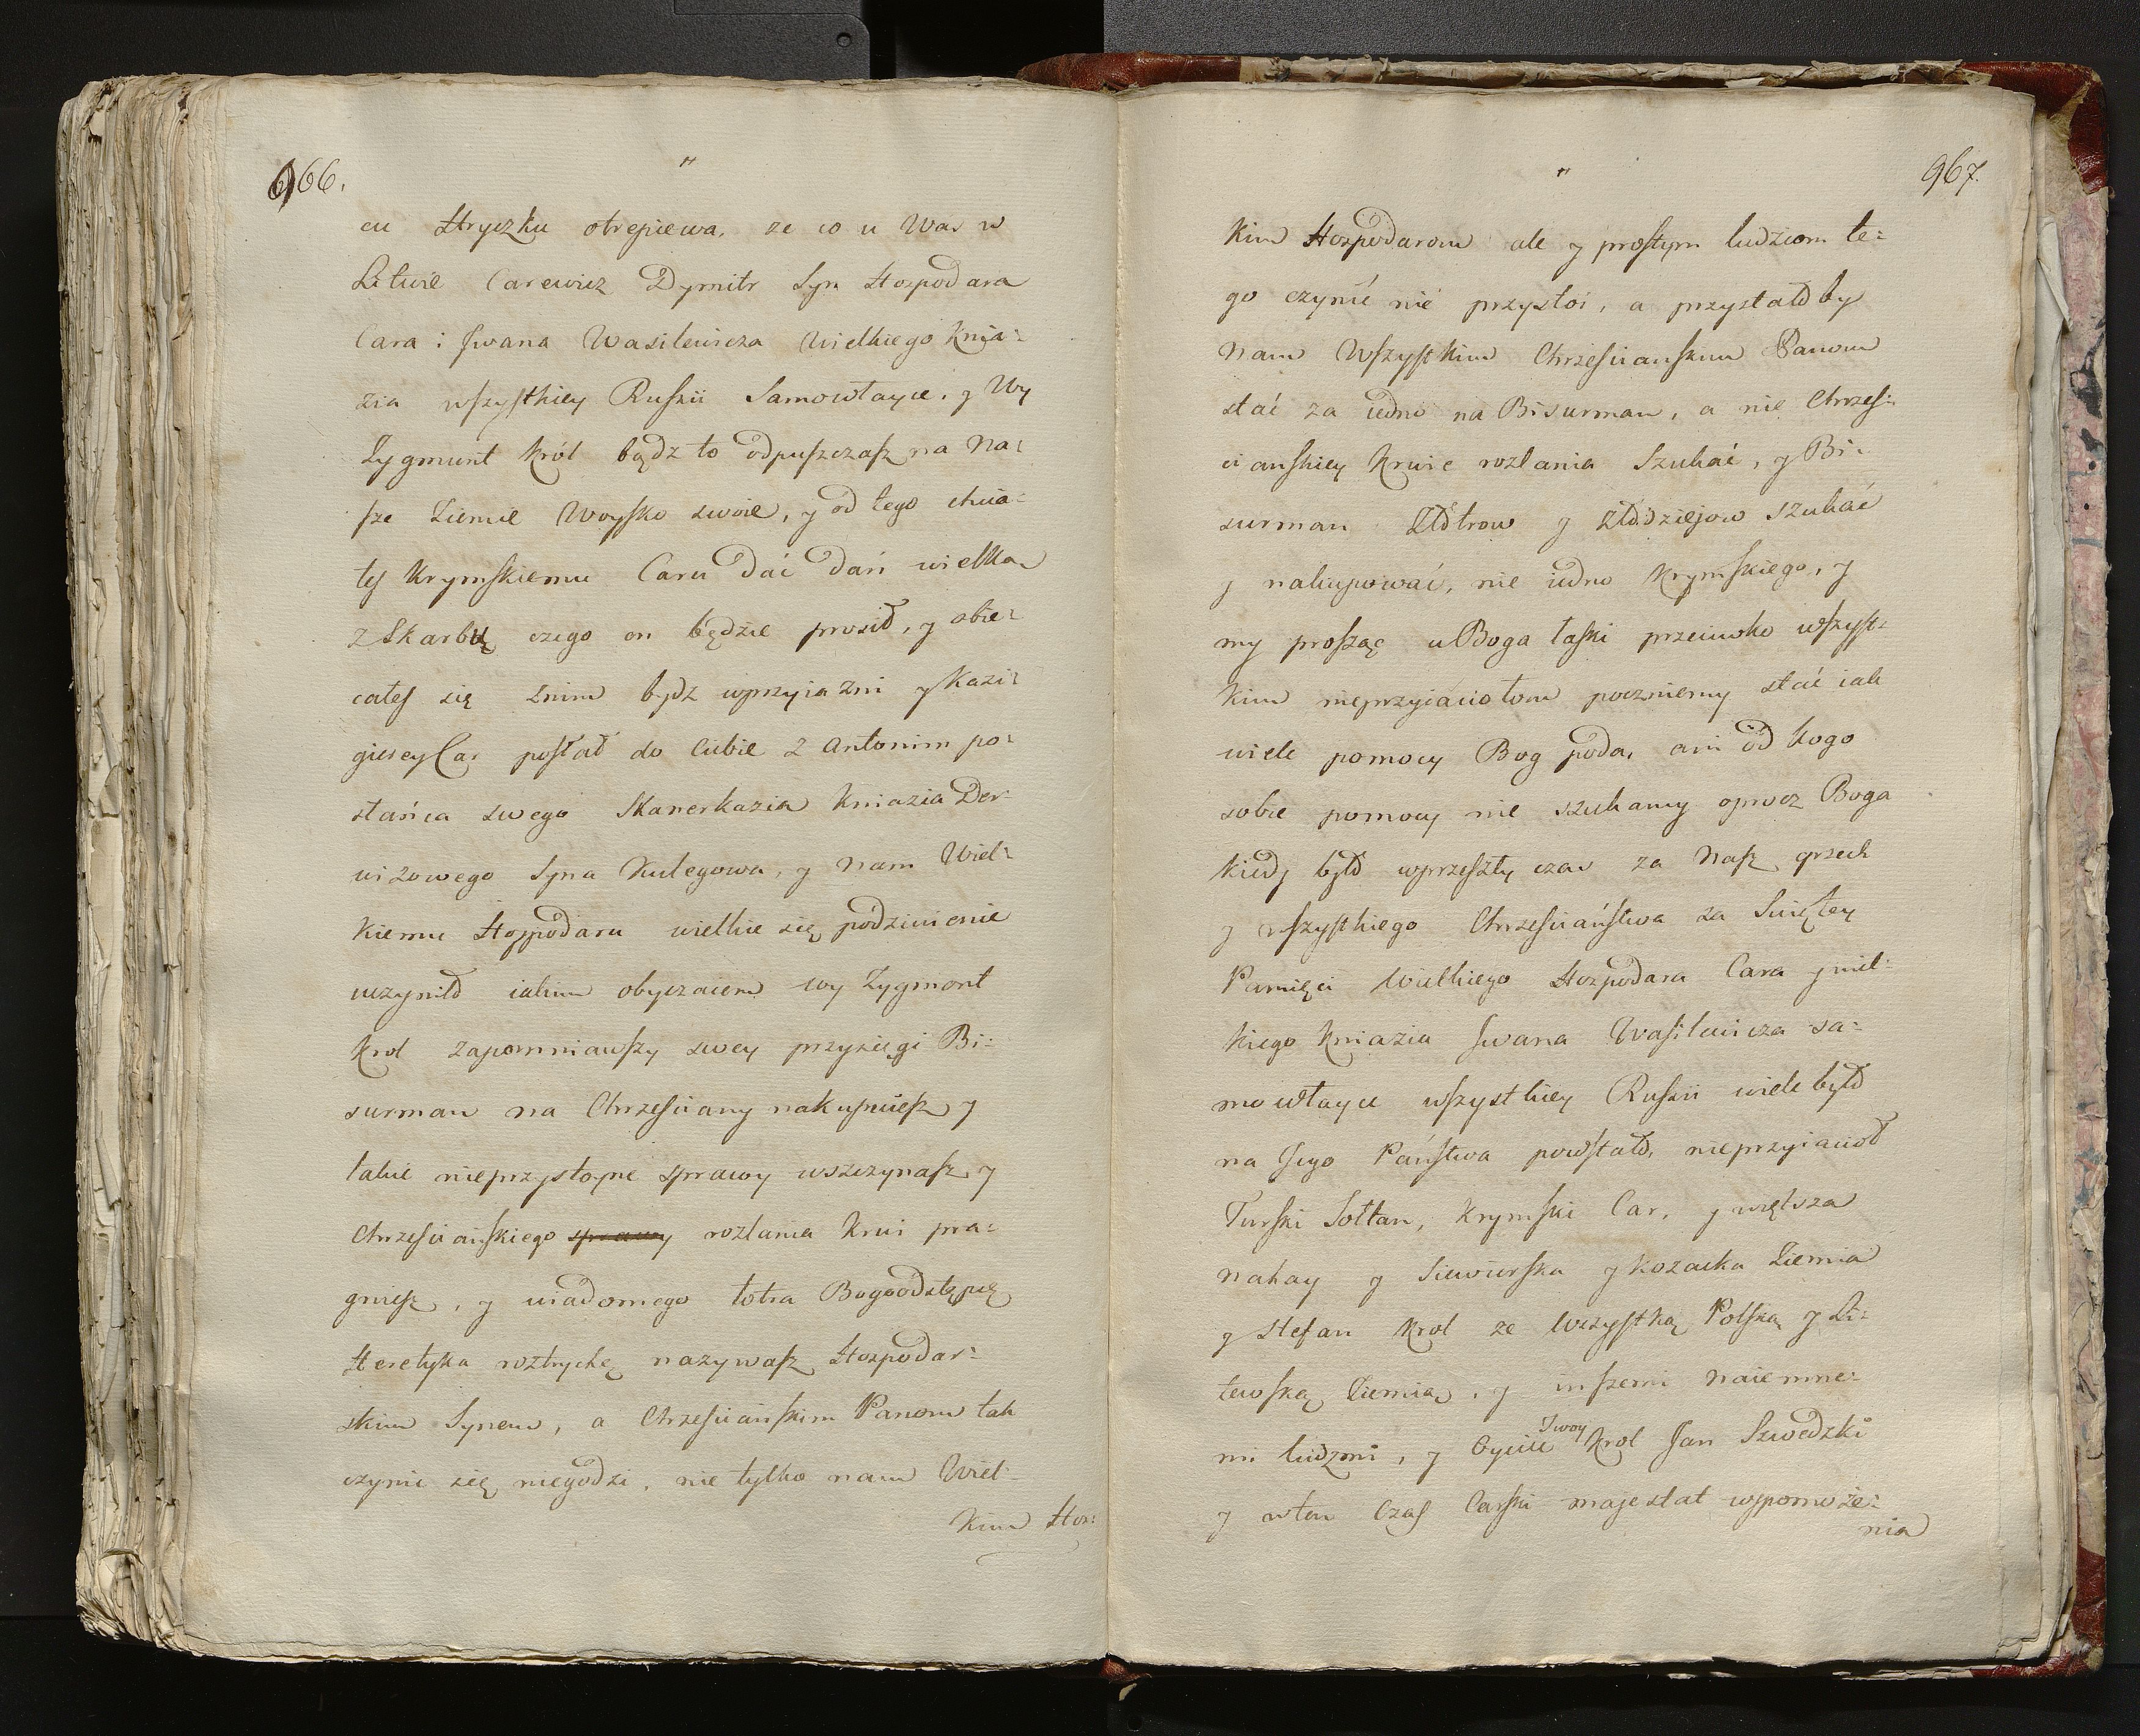 966.
"
cu Stryczku otrepiewa, ze co u Was w
Litwie Carewicz Dymitr Syn Hospodara
Cara i Jwana Wasilewicza Wielkiego Knia:
zia wszystkiey Ruskii Samowłayce, y Wy
Zygmunt Król bądz to odpuszczasz na Na:
sze Ziemie Woysko swoie, y od tego chcia:
łeś Krymskiemu Caru dać dań wielką
z Skarbu czego on będzie prosił, y obie:
całeś się Snim bydz wprzyiazni y Kazi:
gierey Car posłał do Ciebie z Antonim po:
słańca swego Skanerkazia Kniazia Der:
wizowego Syna Kulegowa, y nam Wiel:
kiemu Hospodaru wielkie się podziwienie
uczyniło iakim obyczaiem wy Zygmont
Krol zapomniawszy swey przysięgi Bi:
surman na Chrzesciany nakupuiesz y
takie nieprzystoyne sprawy wszczynasz y
Chrzesciańskiego sprawy rozlania Krwi pra:
gniesz, y wiadomego łotra Bogoodstępcę
Heretyka roztrychę nazywasz Hospodar:
skim Synem, a Chrzesciańskim Panom tak
czynic się niegodzi, nie tylko nam Wiel:
Kim Hos:
967.
"
Kim Hospodarom ale y prostym ludziom te:
go czynić nie przystoi, a przystało by
Nam Wszystkim Chrzescianskim Panom
stać za iedno na Bisurman, a nie Chrzes:
cianskiey Krwie rozlania Szukać, y Bi:
surman Złotrow y Złodziejow szukać
y nakupować, nie iedno Krymskiego, y
my prosząc u Boga łaski przeciwko wszyst:
kim nieprzyiaciołom poczniemy stać iak
wiele pomocy Bog poda, ani od kogo
sobie pomocy nie szukamy oprocz Boga
kiedy było wprzeszły czas za Nasz grzech
y wszystkiego Chrzesciaństwa za Swiętey
Pamięci Wielkiego Hospodara Cara y wiel:
kiego Kniazia Jwana Wasilewicza sa:
mowłayce wszystkiey Ruskii wiele było
na Jego Państwa powstało, nieprzyiacioł
Turski Sołtan, Krymski Car, y większa
nahay y Siewierska y Kozacka Ziemia
y Stefan Krol ze Wszystką Polską y Li:
tewską Ziemią, y inszemi naiemne:
mi ludzmi, y Oyciec Swoy Krol Jan Szwedzki
y wten Czas Carski majestat wspomoże:
nia